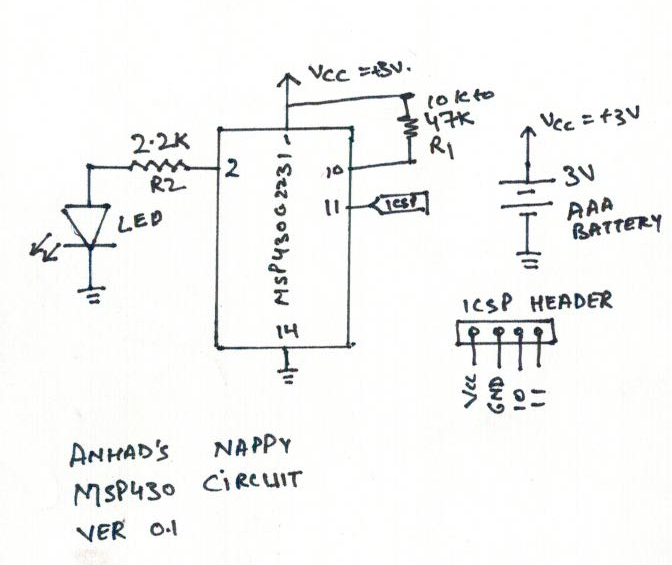 Vcc = +3V.
10K to
47K
R1
2.2K
R2
LED
1
2
10
11
14
MSP430G2231
ICSP
Vcc = +3V
3V
AAA
BATTERY
ICSP HEADER
Vcc
GND
10
11
ANHAD'S NAPPY
MSP430 CIRCUIT
VER 0.1